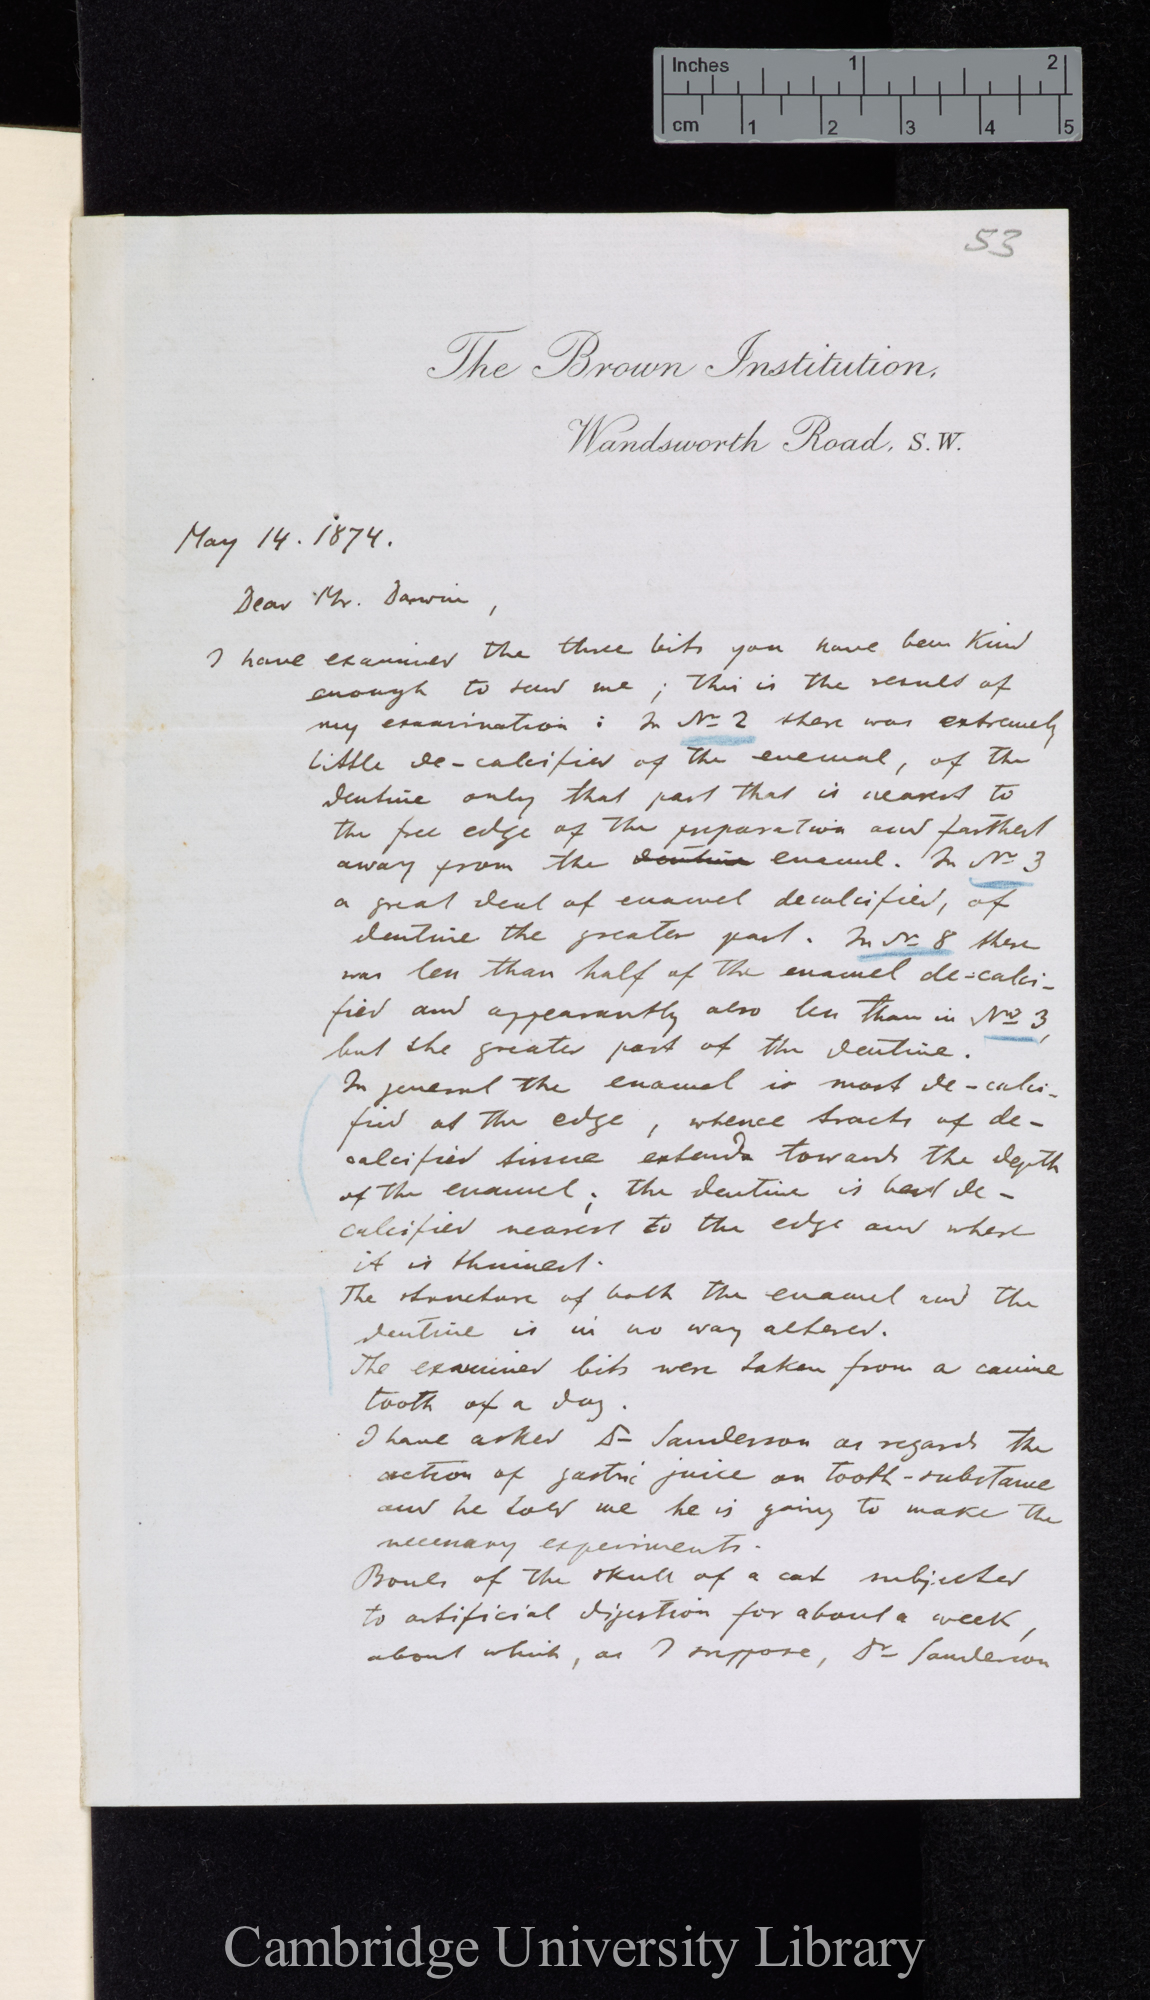 Inches 1 2
cm 1 2 3 4 5
53
The Brown Institution,
Wandsworth Road, S.W.
May 14. 1874.
Dear Mr. Darwin,
I have examined the three bits you have been kind
enough to send me; this is the result of
my examination: In No 2 there was extremely
little de-calcified of the enemal, of the
dentine only that part that is nearest to
the free edge of the preparation and farthest
away from the dentine enamel. In No 3
a great deal of enamel decalcified, of
dentine the greater part. In No 8 there
was less than half of the enamel de-calci-
fied and appearantly also less than in No 3,
but the greater part of the dentine.
In general the enamel is most de-calci-
fied at the edge, whence tracts of de-
calcified tissue extend towards the depth
of the enamel; the dentine is best de-
calcified nearest to the edge and where
it is thinnest.
The structure of both the enamel and the
dentine is in no way altered.
The examined bits were taken from a canine
tooth of a dog.
I have asked Dr Sanderson as regards the
action of gastric juice on tooth-substance
and he told me he is going to make the
necessary experiments.
Bones of the skull of a cat subjected
to artificial digestion for about a week,
about which, as I suppose, Dr Sanderson
Cambridge University Library